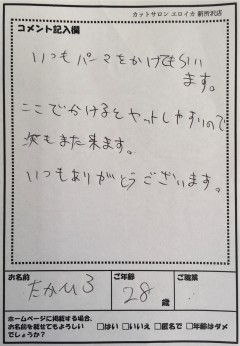 カットサロン エロイカ 新所沢店
コメント記入欄
いつもパーマをかけてもらい
ます。
ここでかけるとセットしやすいので
次もまた来ます。
いつもありがとうございます。
お名前
ご年齢
ご職業
たかひろ
28 歳
ホームページに掲載する場合、
お名前を載せてもよろしい
でしょうか?
□はい □いいえ □匿名で □年齢はダメ